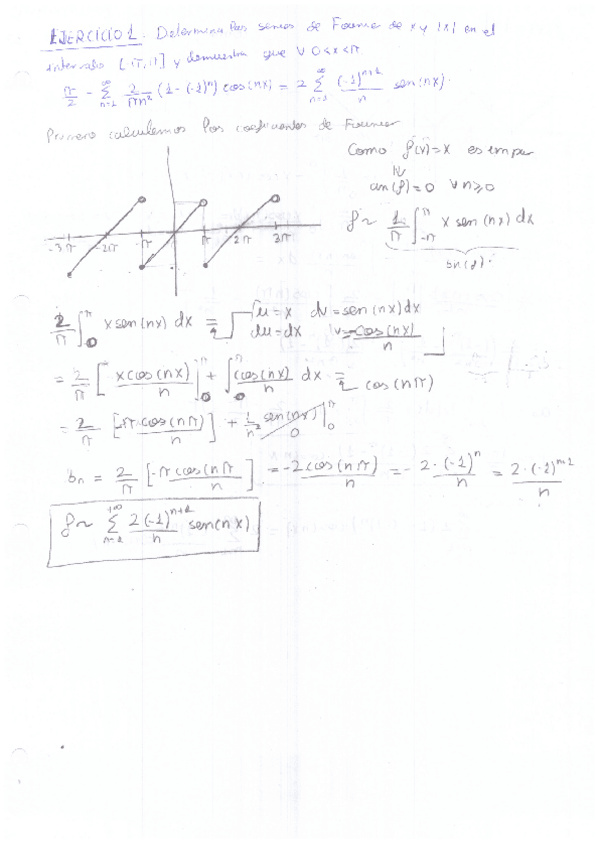 EJERCICIO 1. Determina las series de Fourier de x y |x| en el
intervalo [-π, π] y demuestra que ∀ 0<x<π
π/2 - ∑_{n=1}^{∞} 2/(πn²) (1-(-1)^n) cos(nx) = 2 ∑_{n=1}^{∞} (-1)^{n+1}/n sen(nx).
Primero calculemos los coeficientes de Fourier
Como f(x)=x es impar
⇓
an(f)=0 ∀n≥0
f~ 1/π ∫_{-π}^{π} x sen(nx) dx
bn(f).
-3π -2π -π π 2π 3π
2/π ∫_0^π x sen(nx) dx = [u=x dv=sen(nx)dx
du=dx v=-cos(nx)/n]
= 2/π [- x cos(nx)/n]_0^π + ∫_0^π cos(nx)/n dx =
cos(nπ)
= 2/π [-π cos(nπ)/n] + 1/n² sen(nx)|_0^π
0
bn = 2/π [-π cos(nπ)/n] = -2cos(nπ)/n = -2·(-1)^n/n = 2·(-1)^{n+1}/n
f~ ∑_{n=1}^{+∞} 2(-1)^{n+1}/n sen(nx)